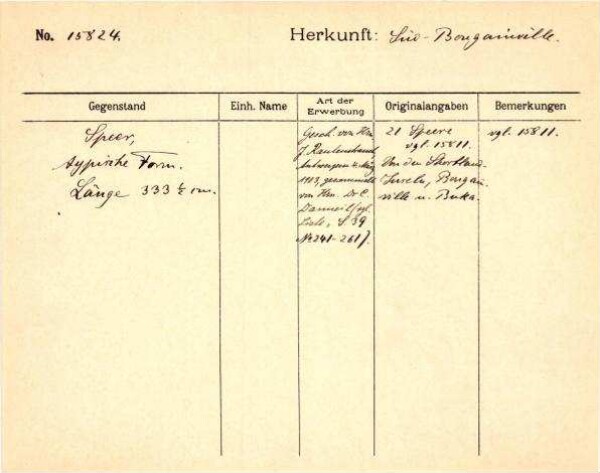 No. 15824.
Herkunft: Süd-Bougainville.
Gegenstand
Einh. Name
Art der
Erwerbung
Originalangaben
Bemerkungen
Speer,
typische Form.
Länge 333 ½ cm.
Gesch. von Hrn.
J. Rautenstrauch,
Antwerpen
1903, gesammelt
von Hrn. Dr. C.
Danneil (vgl.
Liste, S. 39
No 241-261).
21 Speere
vgl. 15811.
Von den Shortland-
Inseln, Bougain-
ville u. Buka.
vgl. 15811.